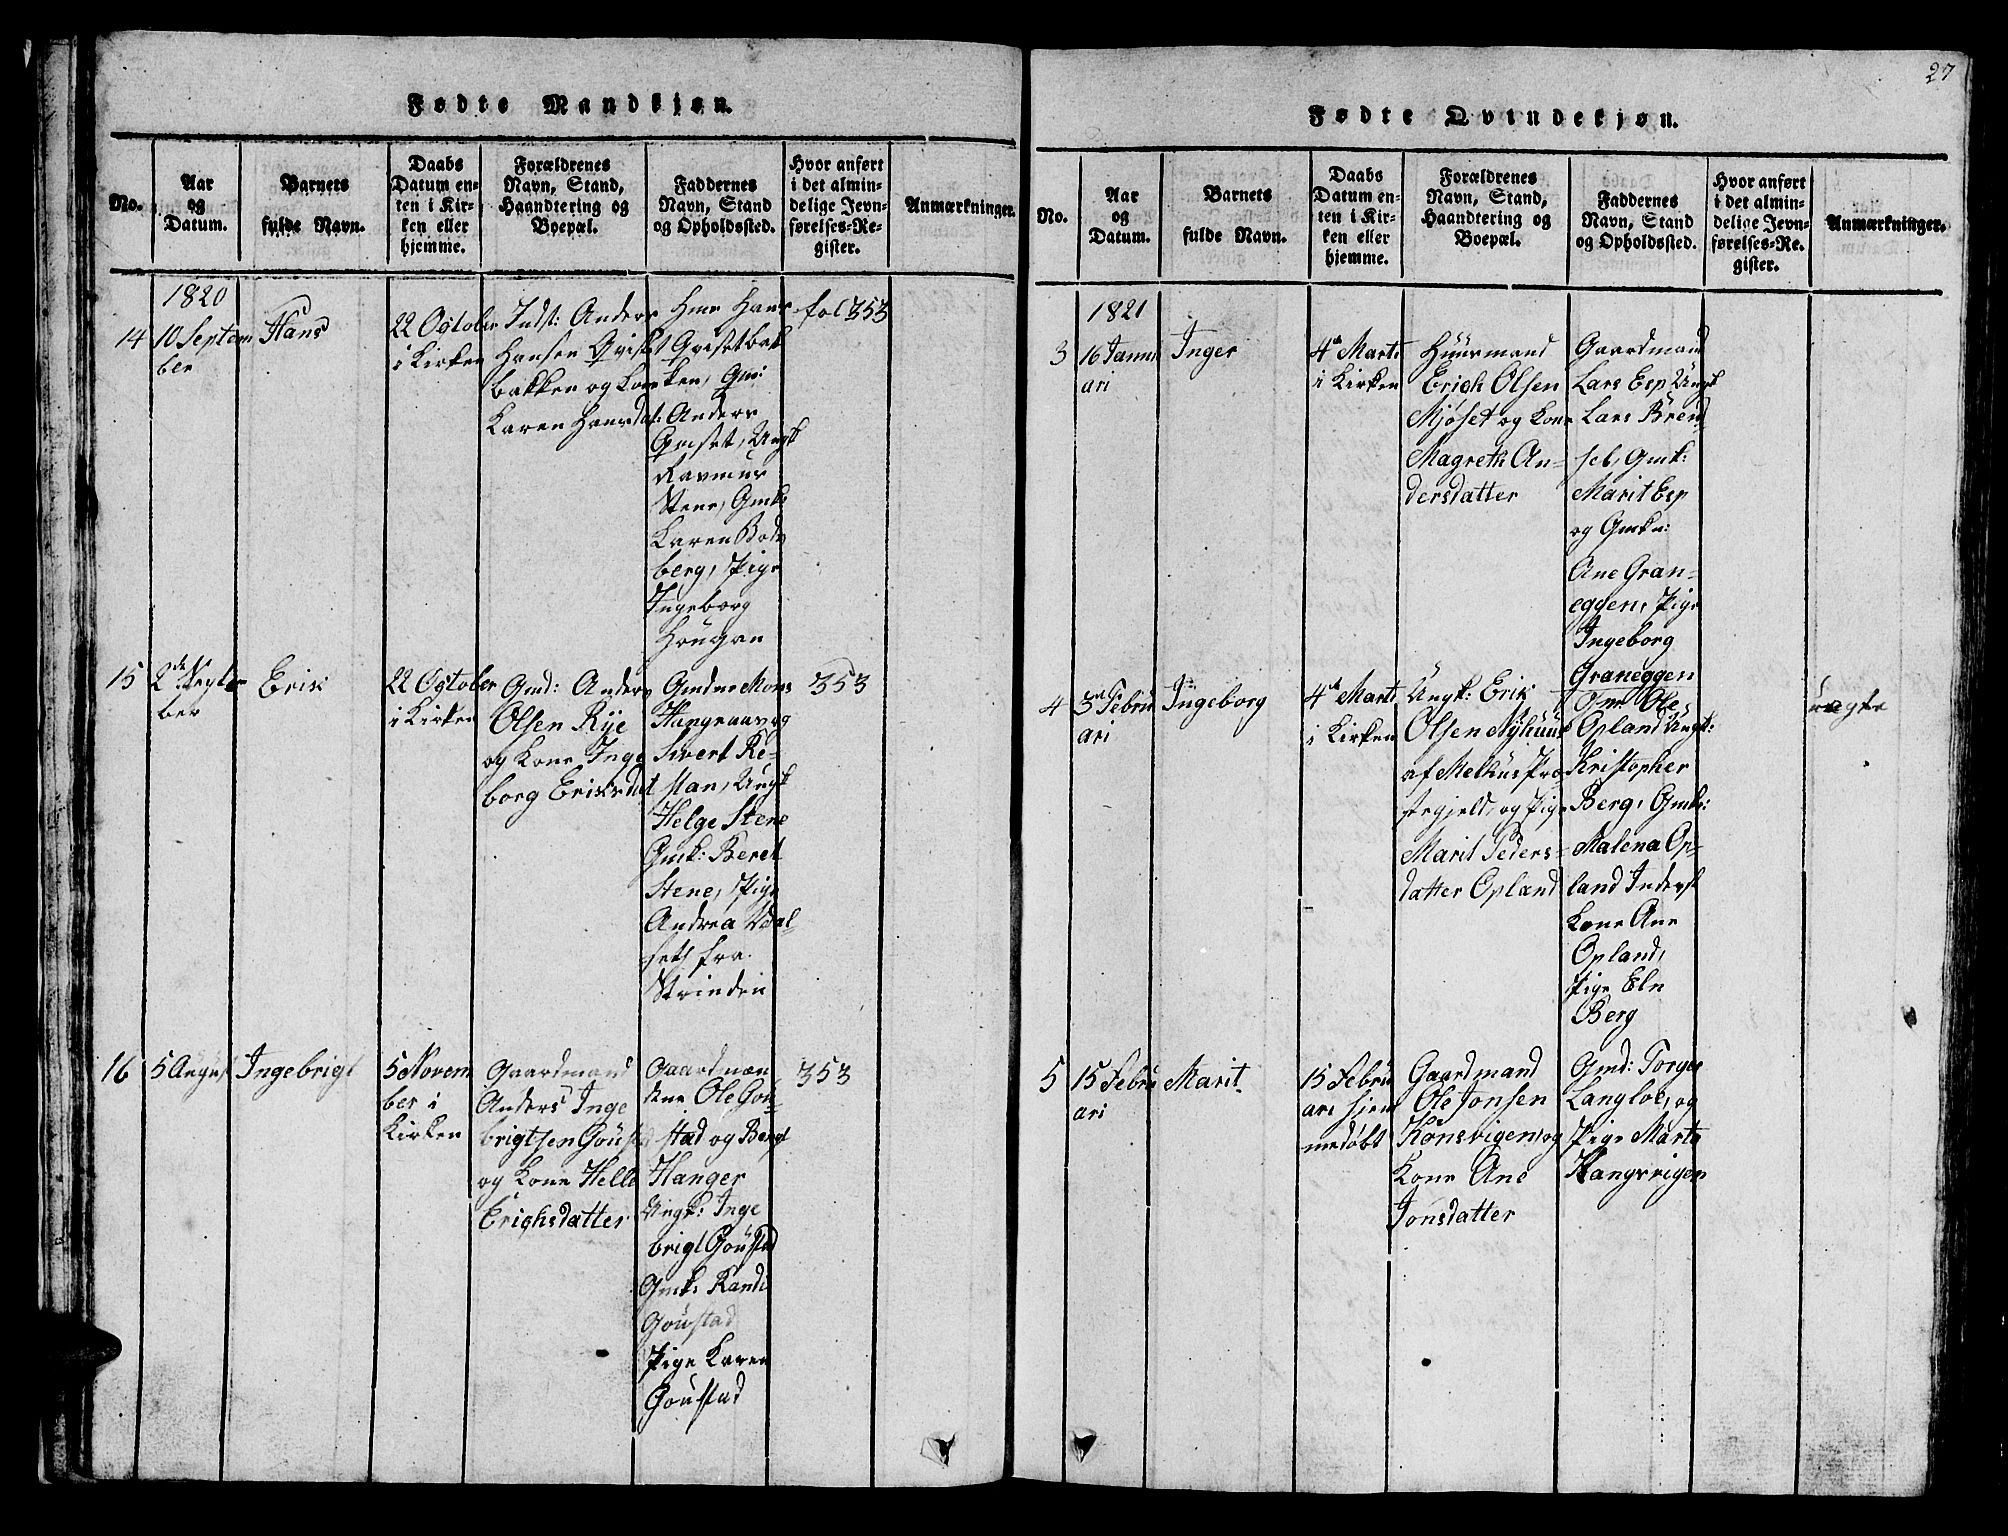 27
Fødte Mandkjøn.
No.
Aar
og
Datum.
Barnets
fulde Navn.
Daabs
Datum en-
ten i Kir-
ken eller
hjemme.
Forældrenes
Navn, Stand,
Haandtering og
Boepæl.
Faddernes
Navn, Stand
og Opholdssted.
Hvor anført
i det almin-
delige Jevn-
førelses-Re-
gister.
Anmærkninger.
1820
14
10 Septem
ber
Hans
22 October
i Kirken
Indst: Anders
Hansen Qviset
bakken og Kone
Karen Hansdat:
Hans
Qvisetbak
ken, Gm:
Anders
Qviset, Ungk
Rasmus
Stene, Gmk:
Karen Bods
berg, Pige
Ingeborg
Hougan
fol 353
15
2de Septem
ber
Erik
22 October
i Kirken
Gmd: Anders
Olsen Rye
og Kone Inge
borg Eriksdat
Gmdne Mons
og
Sivert Re-
stan, Ungk
Helge Stene
Gmk: Beret
Stene, Pige
Andrea Vdal-
seth fra
Strinden
353
16
5 August
Ingebrigt
5 Novem
ber i
Kirken
Gaardmand
Anders Inge
brigtsen Goustad
og Kone Helle
Erichsdatter
Gaardmæn
dene Ole Gou-
stad og Bengt
Hanger
Ungk: Inge
brigt Goustad
Gmk: Randi
Goustad
Pige Karen
Goustad
353
Fødte Qvindekjøn.
No.
Aar
og
Datum.
Barnets
fulde Navn.
Daabs
Datum en-
ten i Kir-
ken eller
hjemme.
Forældrenes
Navn, Stand,
Haandtering og
Boepæl.
Faddernes
Navn, Stand
og Opholdssted.
Hvor anført
i det almin-
delige Jevn-
førelses-Re-
gister.
Anmærkninger.
1821
3
16 Janu
ari
Inger
4de Marts
i Kirken
Huusmand
Erich Olsen
Mjøset og Kone
Magreth An-
dersdatter
Gaardmand
Lars Esp Ungk
Lars Brend
seb, Gmk:
Marit Esp
og Gmk:
Ane Gran-
eggen, Pige
Ingeborg
Graneggen
4
3de Febru
ari
Ingeborg
4de Marts
i Kirken
Ungk: Erik
Olsen Nyhuus
af Melhus Præ
stegjeld, og Pige
Marit Peders-
datter Opland
Gmd Ole
Opland Ungk:
Kristopher
Berg, Gmk:
Malena Op-
land Inderst
Kone Ane
Opland,
Pige Eln
Berg
uægte
5
15 Febru
ari
Marit
15 Febru
ari hjem
medøbt
Gaardmand
Ole Jonsen
Kønsvigen, og
Kone Ane
Jonsdatter
Gmd: Torger
Langloe, og
Pige Marte
Kangsvigen